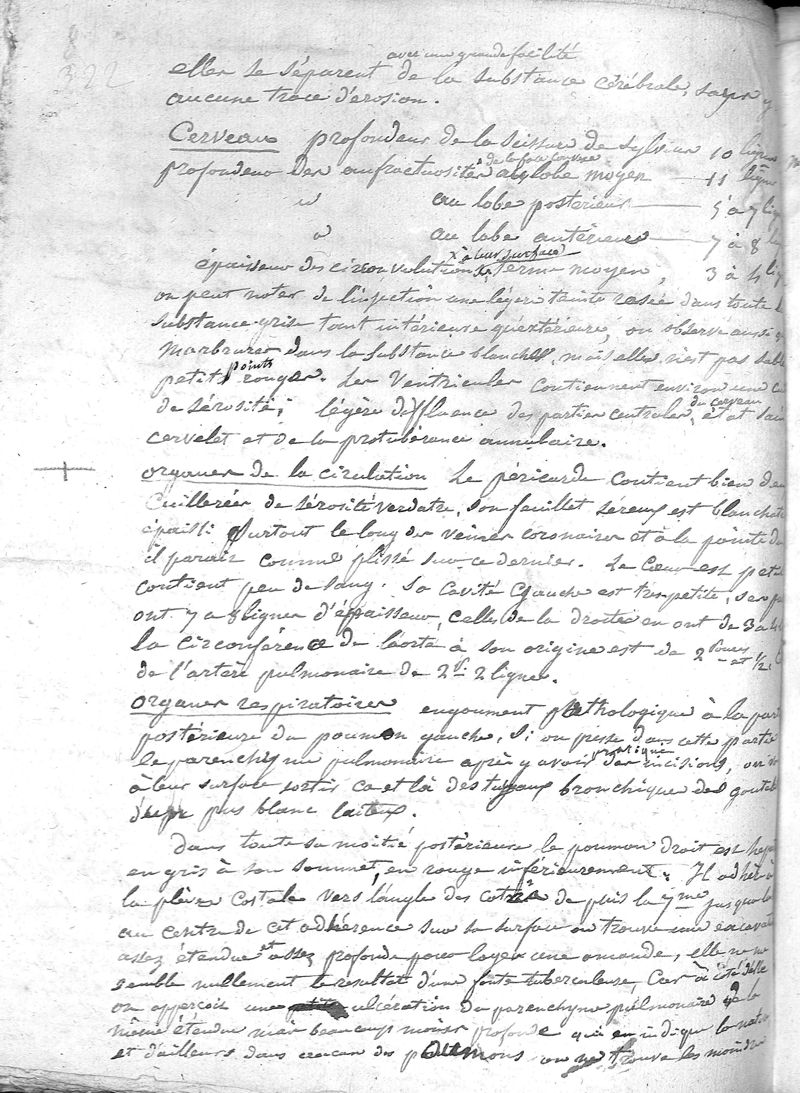 322
avec une grande facilité
elles se séparent de la substance cérébrale, sans y
aucune trace d'érosion.
Cerveau profondeur de la scissure de sylvius 10 lignes
de la face convexe
profondeur des anfractuosités au lobe moyen — 11 lignes
id au lobe postérieur — 5 à 7 lig
id au lobe antérieur — 7 à 8 li
x à leur surface
épaisseur des circonvolutions x terme moyen, 3 à 4 lig
on peut noter de l'injection une légère teinte rosée dans toute la
substance grise tant intérieure qu'extérieure, on observe aussi q
marbrures dans la substance blanche, mais elle n'est pas sablé
points
petits rouges. Les Ventricules contiennent environ une cu
du cerveau
de sérosité; légère diffluence des parties centrales, état sain
cervelet et de la protubérance annulaire.
organes de la circulation Le péricarde contient bien deu
Cuillerées de sérosité verdatre, son feuillet séreux est blanchatre
épaissi surtout le long des veines coronaires et à la pointe du
il parait comme plissé sur ce dernier. Le Cœur est petit
contient peu de sang. Sa cavité Gauche est très petite, ses par
ont 7 a 8 lignes d'épaisseur, celles de la droite en ont de 3 a 4
la circonférence de l'aorte à son origine est de 2 Pouces et 1/2.
de l'artère pulmonaire de 2 P. 2 lignes.
Organes respiratoires engoument pathologique à la part
postérieure du poumon gauche, Si on presse dans cette partie
pratiqué
le parenchyme pulmonaire après y avoir des incisions, on v
à leur surface sortir ça et là des tuyaux bronchiques des goutel
pus blanc laiteux.
Dans toute sa moitié postérieure le poumon droit est hépat
en gris à son sommet, en rouge inférieurement. Il adhère à
la plèvre Costale vers l'angle des cotes depuis la 7me jusqu'à la
au centre de cet adhérence sur sa surface on trouve une excavati
assez étendue et assez profonde pour loger une amande, elle ne me
semble nullement le resultat d'une fonte tuberculeuse, Car à côté d'elle
on apperçoit une ulcération du parenchyme pulmonaire de la
même étendue mais beaucoup moins profonde qui en indique la natur
et d'ailleurs dans aucun des poumons on ne trouve les moindre